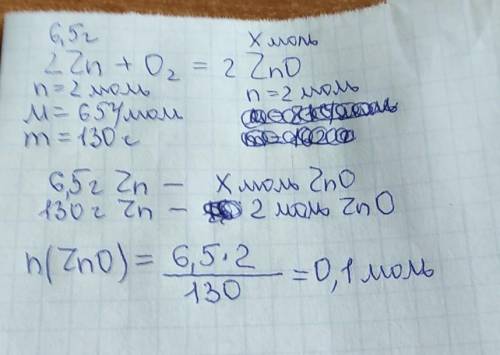 6,5г x моль
2 Zn + O₂ = 2 ZnO
n = 2 моль n = 2 моль
M = 65 г/моль
m = 130 г
6,5г Zn – x моль ZnO
130г Zn – 2 моль ZnO
n(ZnO) = 6,5·2 / 130 = 0,1 моль